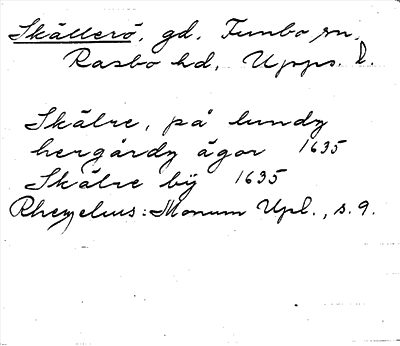 Skällerö, gd, Tumbo sn,
Rasbo hd, Upps. l.
Skälre, på lundz
hergårdz ägor 1635
Skälre bÿ 1635
Rhezelius: Monum Upl., s. 9.